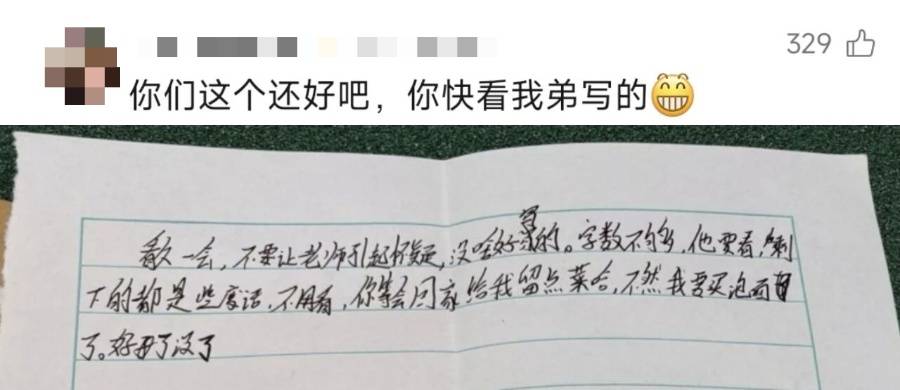 329
你们这个还好吧，你快看我弟写的😁
看久一会，不要让老师引起怀疑，没啥好写的。字数不够，他要看，剩
下的都是些废话，不用看，你等会回家给我留点菜合，不然我要买泡面
了。好了没了